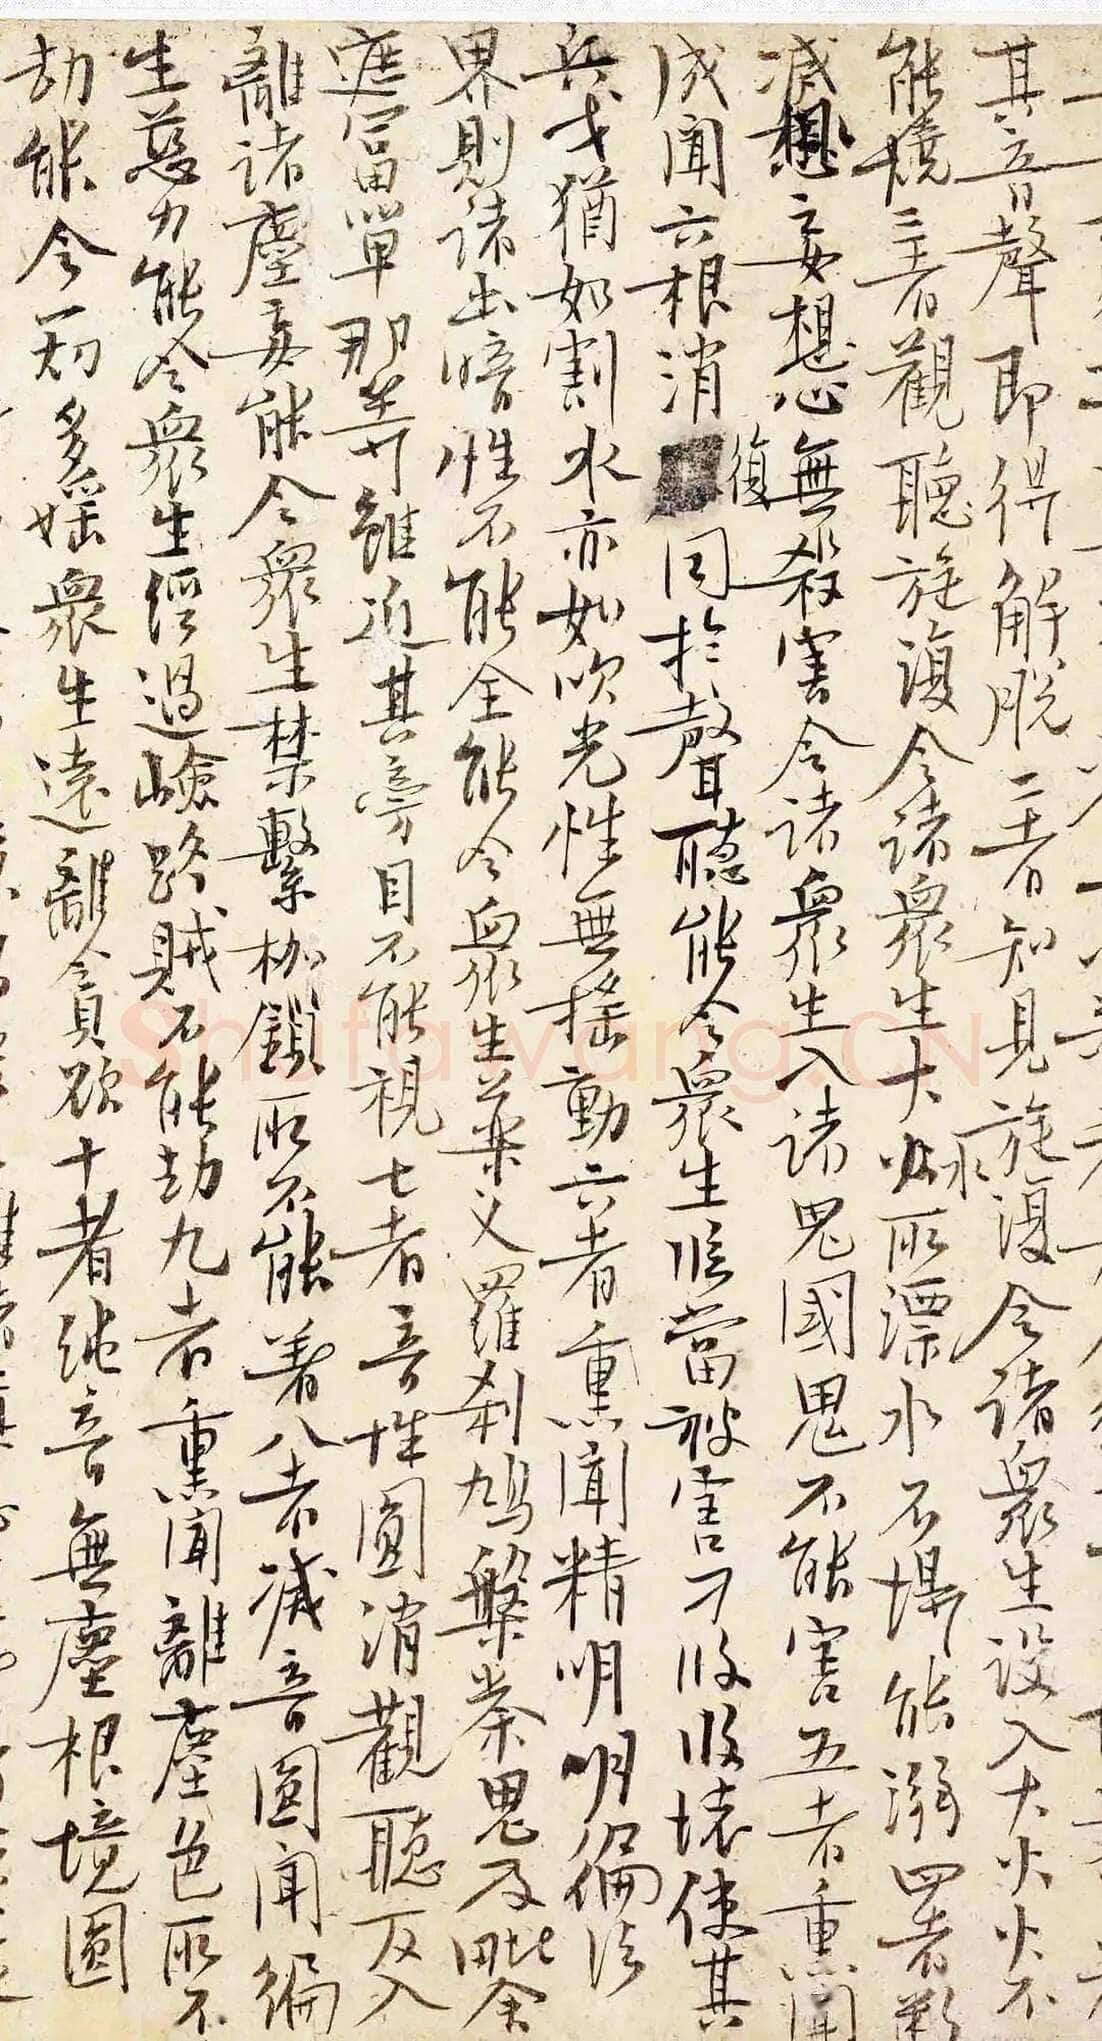 其音聲即得解脫二者知見旋復令諸眾生設入大火火不
能燒三者觀聽旋復令諸眾生大水所漂水不能溺四者斷
滅妄想心無殺害令諸眾生入諸鬼國鬼不能害五者熏聞
成聞六根消復同於聲聽能令眾生臨當被害刀段段壞使其
兵戈猶如割水亦如吹光性無搖動六者熏聞精明明徧法
界則諸幽暗性不能全能令眾生藥叉羅剎鳩槃茶鬼及毗舍
遮富單那等雖近其旁目不能視七者音性圓消觀聽返入
離諸塵妄能令眾生禁繫枷鎖所不能著八者滅音圓聞徧
生慈力能令眾生經過嶮路賊不能劫九者熏聞離塵色所不
劫能令一切多婬眾生遠離貪欲十者純音無塵根境圓
Shufawang.CN